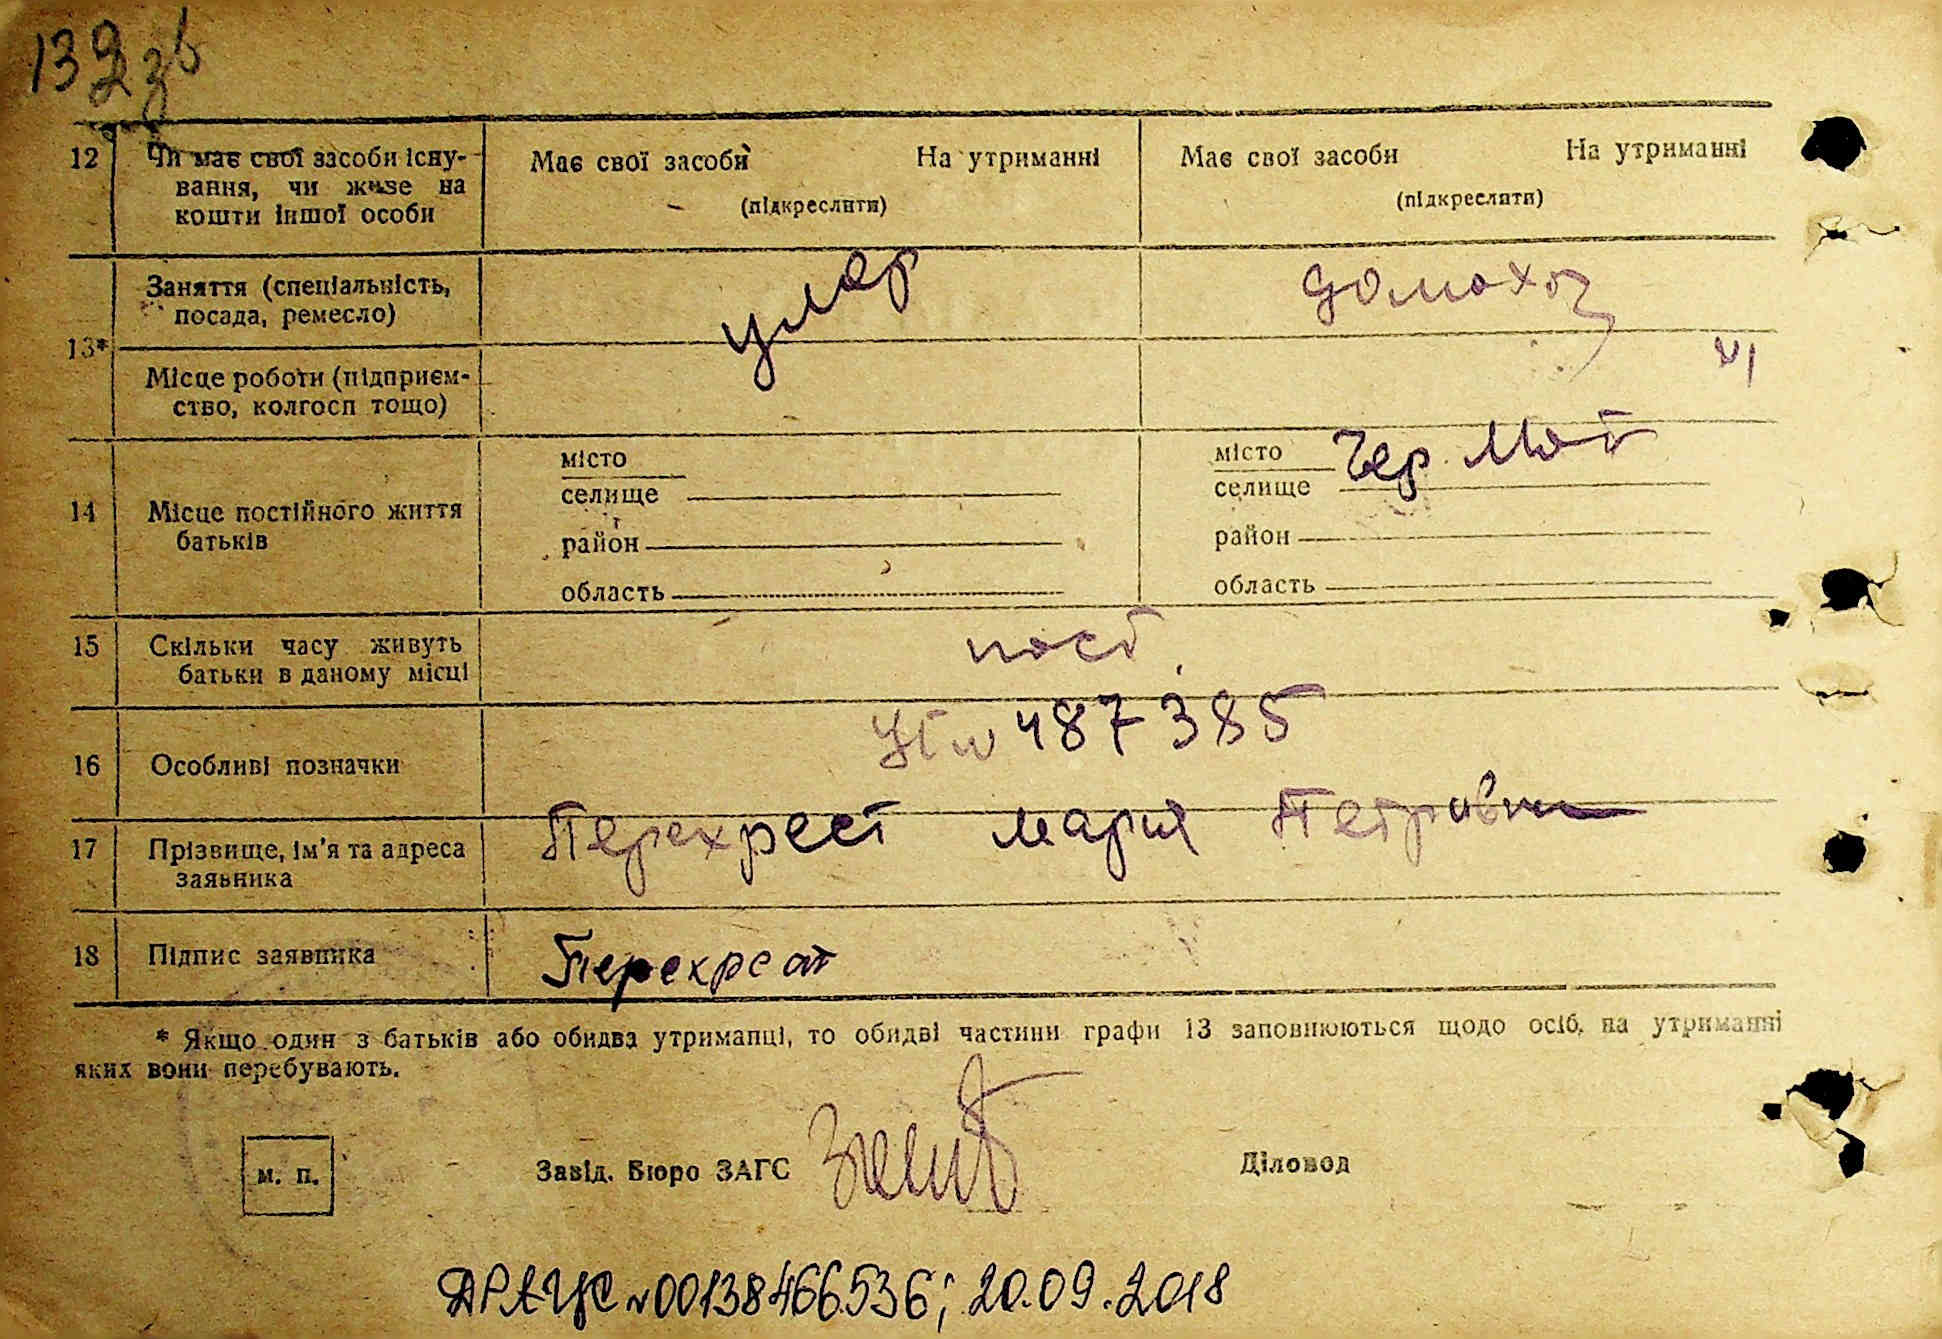 132 зв
12 Чи має свої засоби існу- Має свої засоби На утриманні Має свої засоби На утриманні
вання, чи живе на (підкреслити) (підкреслити)
кошти іншої особи
13* Заняття (спеціальність, умер домохоз
посада, ремесло)
Місце роботи (підприєм-
ство, колгосп тощо)
14 Місце постійного життя
батьків
місто місто Чер. Мот
селище селище
район район
область область
15 Скільки часу живуть пост.
батьки в даному місці
16 Особливі позначки 487385
17 Прізвище, ім'я та адреса Перехрест Мария Петровна
заявника
18 Підпис заявника Перехрест
* Якщо один з батьків або обидва утриманці, то обидві частини графи 13 заповнюються щодо осіб, на утриманні
яких вони перебувають.
М. П. Завід. Бюро ЗАГС Діловод
ДРАЦС №00138466536; 20.09.2018